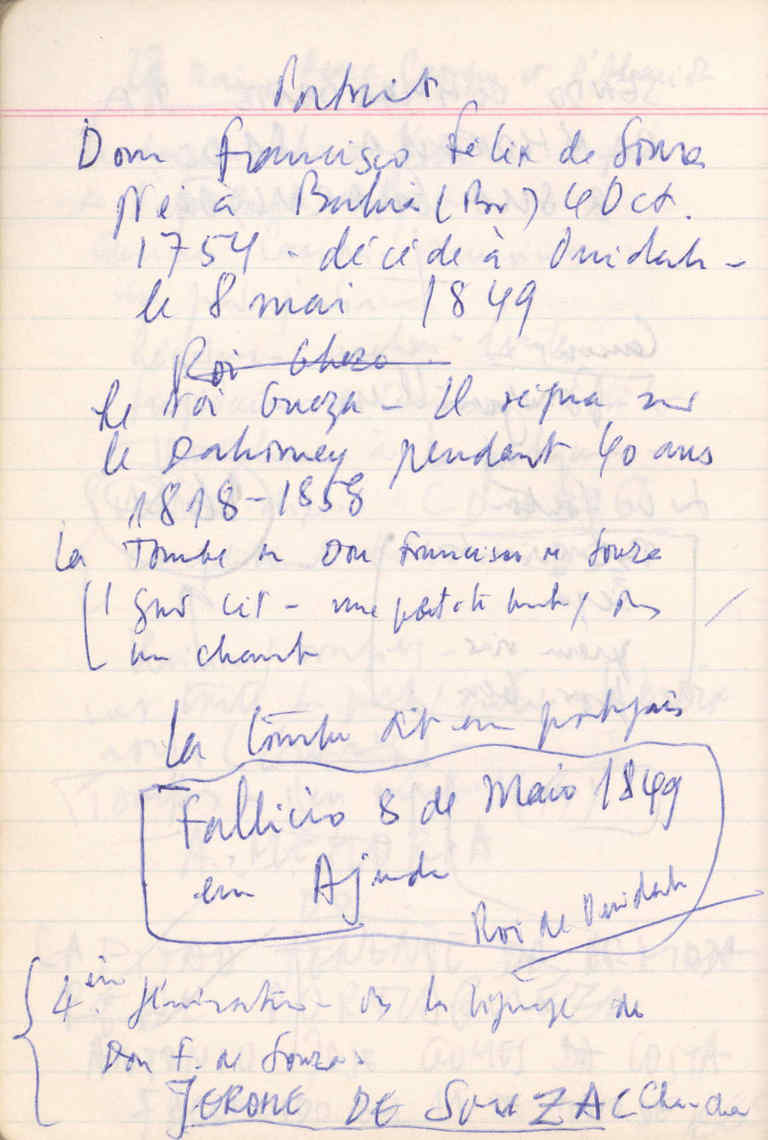 Portrait
Dom Francisco Felix de Souza
Né à Bahia (Br) 4 Oct.
1754 - décédé à Ouidah -
le 8 mai 1849
Roi Ghezo
Le roi Gueza - Il régna sur
le Dahomey pendant 40 ans
1818-1858
La Tombe de Don Francisco de Souza
un chambre
La tombe dit en portugais
Fallicio 8 de Maio 1849
em Ajuda
Roi de Ouidah
4ièm génération - de la lignée de
Don F. de Souza.
JEROME DE SOUZA Chacha